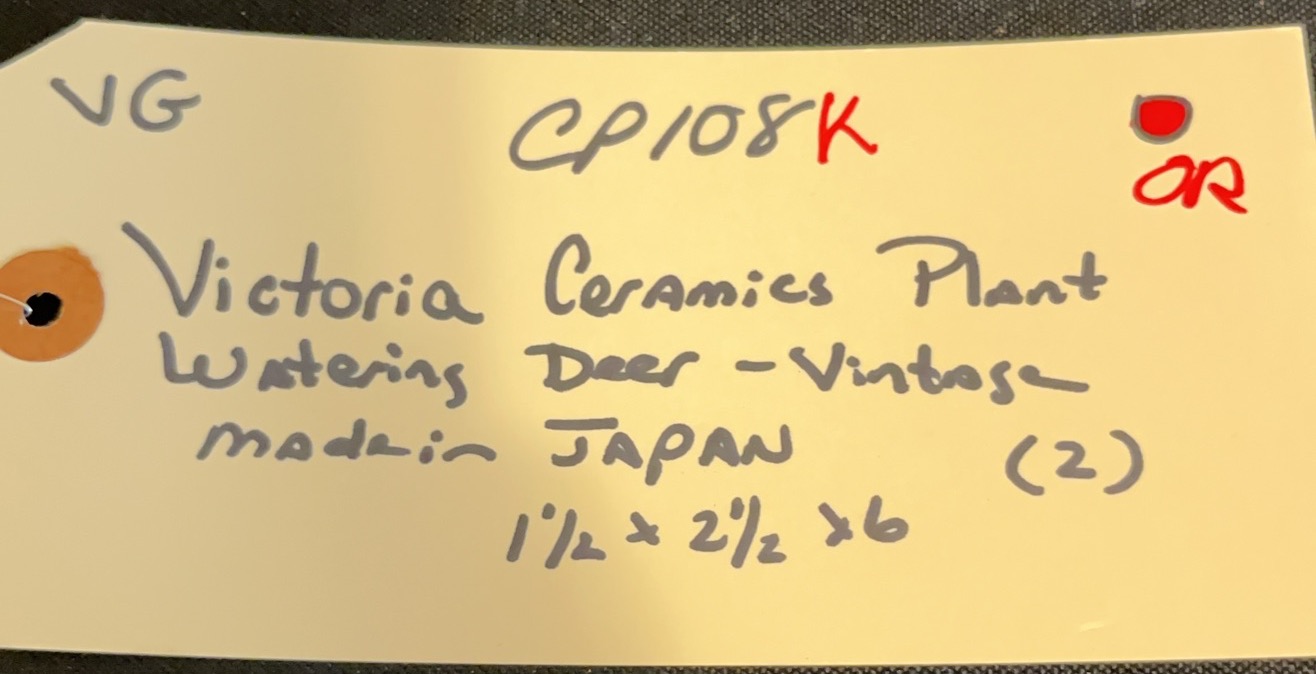 VG CP108K
OR
Victoria Ceramics Plant
Watering Deer - Vintage
made in JAPAN (2)
1 1/2 x 2 1/2 x 6